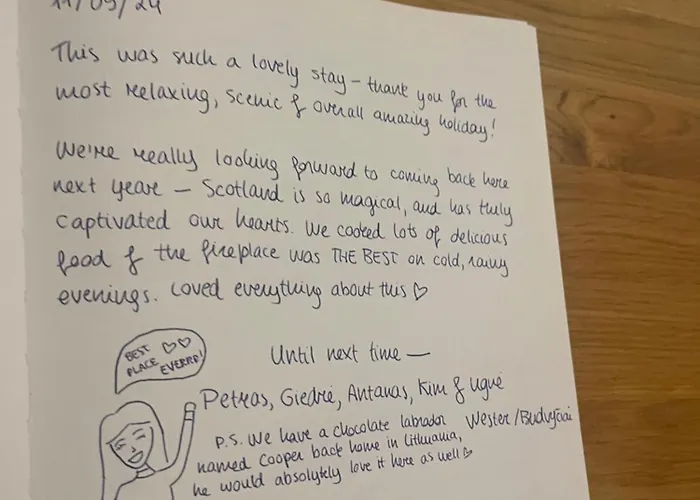 11/09/24
This was such a lovely stay – thank you for the
most relaxing, scenic & overall amazing holiday!
We're really looking forward to coming back here
next year – Scotland is so magical, and has truly
captivated our hearts. We cooked lots of delicious
food & the fireplace was THE BEST on cold, rainy
evenings. Loved everything about this ♡
BEST ♡♡
PLACE EVERRR!
Until next time —
Petras, Giedrė, Antanas, Kim & Ugnė
Wester/Budvyčiai
P.S. We have a chocolate labrador
named Cooper back home in Lithuania,
he would absolutely love it here as well ♡